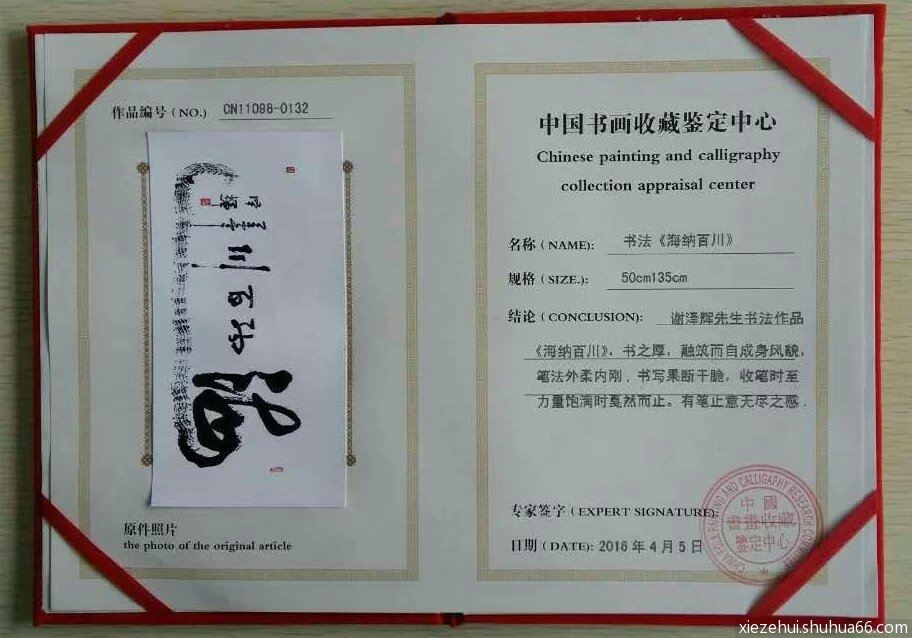 作品编号（NO.） CN11098-0132
海纳百川
原件照片
the photo of the original article
中国书画收藏鉴定中心
Chinese painting and calligraphy
collection appraisal center
名称（NAME): 书法《海纳百川》
规格（SIZE.): 50cm135cm
结论（CONCLUSION): 谢泽辉先生书法作品
《海纳百川》，书之厚，融筑而自成身风貌，
笔法外柔内刚、书写果断干脆，收笔时至
力量饱满时戛然而止。有笔止意无尽之感.
专家签字（EXPERT SIGNATURE):
日期（DATE): 2016年4月5日
中國
書畫收藏
鉴定中心
xiezehui.shuhua66.com